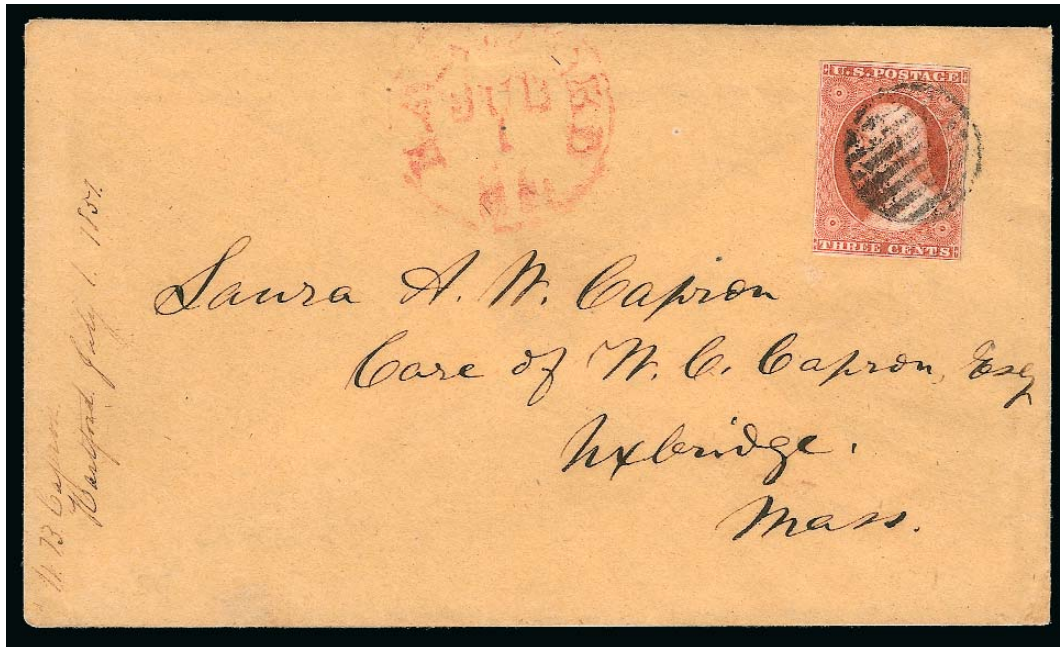 U.S. POSTAGE
THREE CENTS
Laura A. W. Capron
Care of W. C. Capron, Esq
Uxbridge.
Mass.
Capron.
Hartford. July 1. 1851.